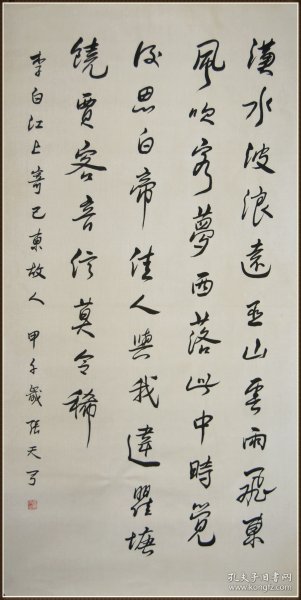 漢水波浪遠巫山雲雨飛東
風吹客夢西落此中時覺
後思白帝佳人與我違瞿塘
饒賈客音信莫令稀
李白江上寄巴東故人 甲子歲張天弓
孔夫子旧书网
www.kongfz.com